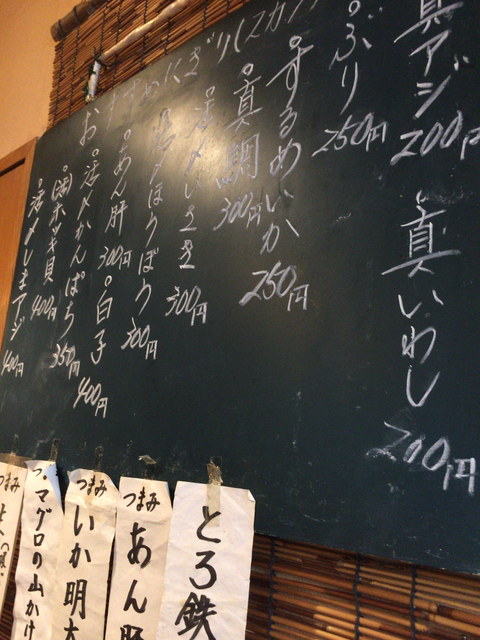 真アジ 200円
真いわし 200円
ぶり 250円
するめいか 250円
真鯛 300円
活〆いさき 300円
活〆ほうぼう 300円
おすすめにぎり
あん肝 300円
白子 400円
活〆かんぱち 350円
ホッキ貝 400円
活〆しまアジ 400円
とろ鉄
つまみ あん肝
つまみ いか明太
マグロの山かけ
つまみ